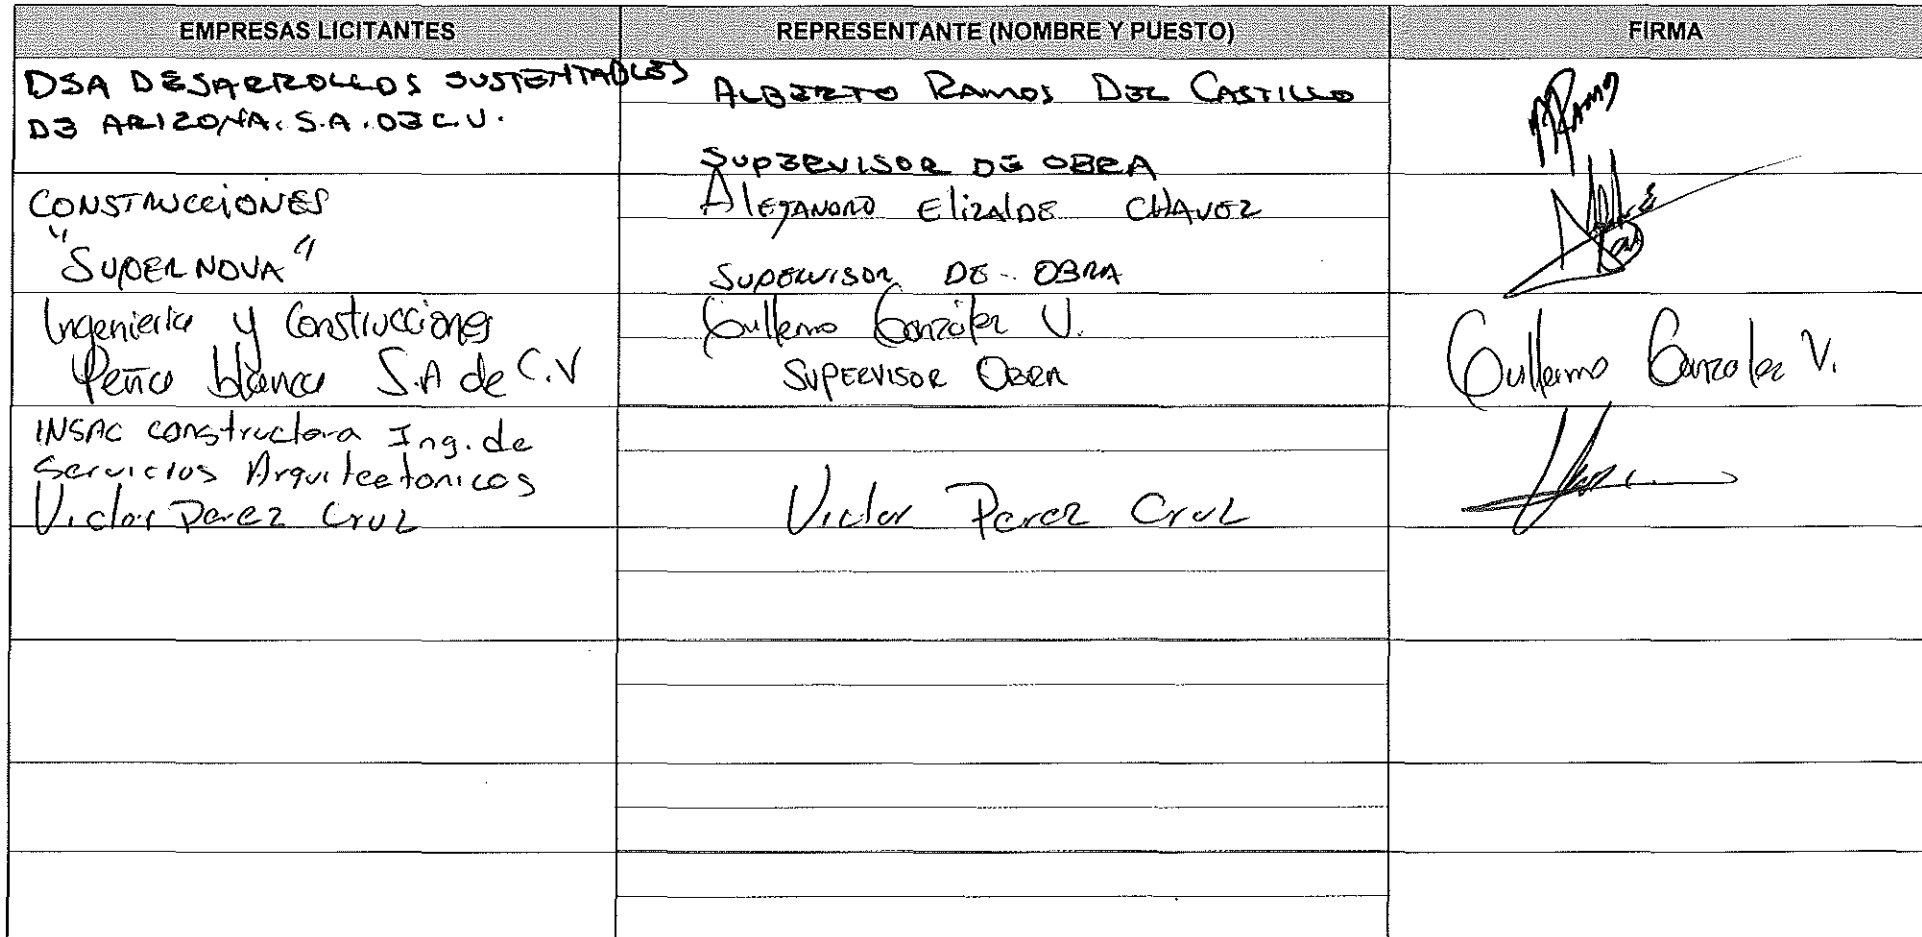 EMPRESAS LICITANTES
REPRESENTANTE (NOMBRE Y PUESTO)
FIRMA
DSA DESARROLLOS SUSTENTABLES
DE ARIZONA. S.A. DE C.V.
ALBERTO RAMOS DEL CASTILLO
SUPERVISOR DE OBRA
CONSTRUCCIONES
"SUPERNOVA"
ALEJANDRO ElizalDE CHAVEZ
SUPERVISOR DE OBRA
Ingenieria y Construcciones
Peña blanca S.A de C.V
Guillermo González V.
SUPERVISOR OBRA
Guillermo Gonzalez V.
INSAC constructora Ing. de
Servicios Arquitectonicos
Victor Perez Cruz
Victor Perez Cruz